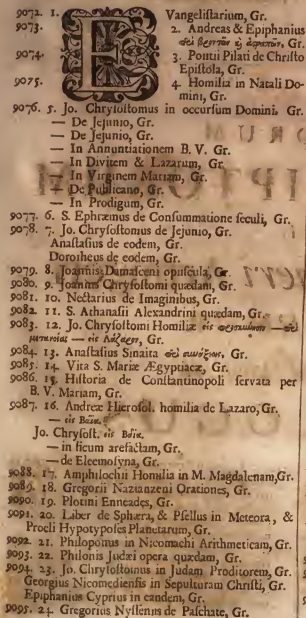 9072. 1. E Vangelistarium, Gr.
9073. 2. Andreas & Epiphanius
περὶ ὁρατῶν ἢ ἀορατῶν, Gr.
9074. 3. Pontii Pilati de Christo
Epistola, Gr.
9075. 4. Homilia in Natali Do-
mini, Gr.
9076. 5. Jo. Chrysostomus in occursum Domini, Gr.
— De Jejunio, Gr.
— De Jejunio, Gr.
— In Annuntiationem B. V. Gr.
— In Divitem & Lazarum, Gr.
— In Virginem Mariam, Gr.
— De Publicano, Gr.
— In Prodigum, Gr.
9077. 6. S. Ephræmus de Consummatione seculi, Gr.
9078. 7. Jo. Chrysostomus de Jejunio, Gr.
Anastasius de eodem, Gr.
Dorotheus de eodem, Gr.
9079. 8. Joannis Damasceni opuscula, Gr.
9080. 9. Joannis Chrysostomi quædam, Gr.
9081. 10. Nectarius de Imaginibus, Gr.
9082. 11. S. Athanasii Alexandrini quædam, Gr.
9083. 12. Jo. Chrysostomi Homiliæ εἰς — περὶ
μετανοίας — εἰς Λάζαρον, Gr.
9084. 13. Anastasius Sinaita περὶ συνάξεως, Gr.
9085. 14. Vita S. Mariæ Ægyptiacæ, Gr.
9086. 15. Historia de Constantinopoli servata per
B. V. Mariam, Gr.
9087. 16. Andreæ Hierosol. homilia de Lazaro, Gr.
— εἰς Βαΐα.
Jo. Chrysost. εἰς Βαΐα.
— in ficum arefactam, Gr.
— de Eleemosyna, Gr.
9088. 17. Amphilochii Homilia in M. Magdalenam, Gr.
9089. 18. Gregorii Nazianzeni Orationes, Gr.
9090. 19. Plotini Enneades, Gr.
9091. 20. Liber de Sphæra, & Psellus in Meteora, &
Procli Hypotyposes Planetarum, Gr.
9092. 21. Philoponus in Nicomachi Arithmeticam, Gr.
9093. 22. Philonis Judæi opera quædam, Gr.
9094. 23. Jo. Chrysostomus in Judam Proditorem, Gr.
Georgius Nicomediensis in Sepulturam Christi, Gr.
Epiphanius Cyprius in eandem, Gr.
9095. 24. Gregorius Nyssenus de Paschate, Gr.